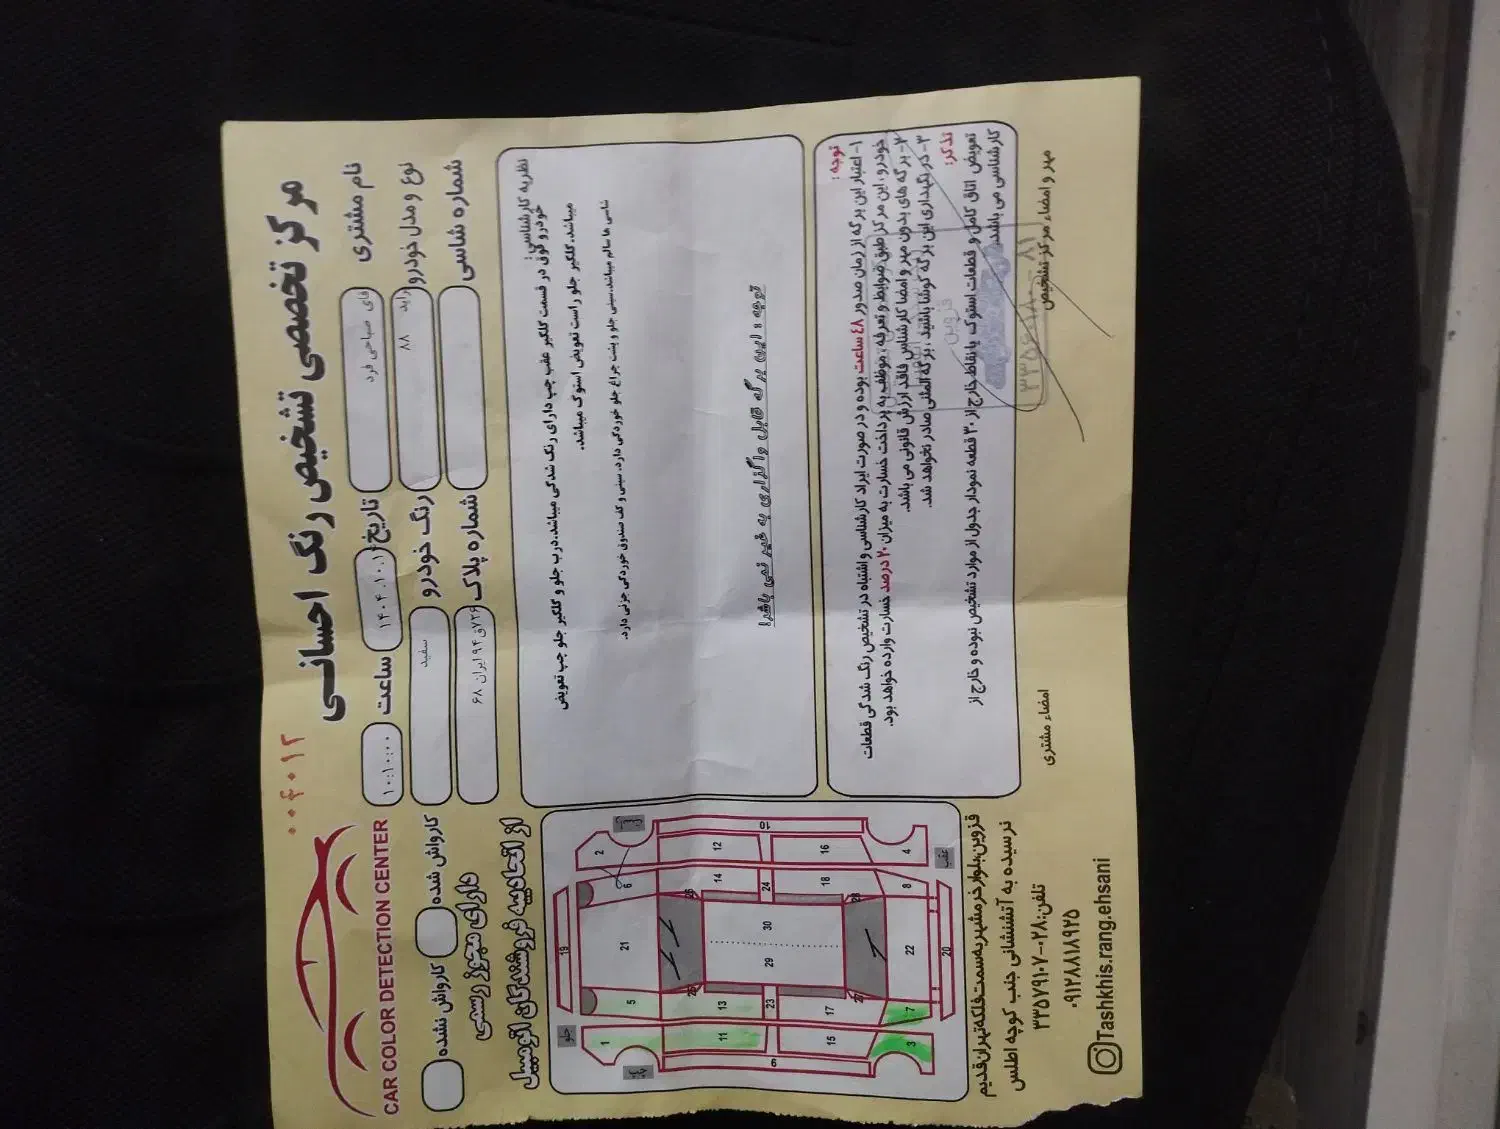 مرکز تخصصی تشخیص رنگ احسانی
۰۰۴۰۱۲
CAR COLOR DETECTION CENTER
نام مشتری
فای صباحی فرد
تاریخ
ساعت
۱۰:۱۰:۰۰
نوع و مدل خودرو
راید ۸۸
رنگ خودرو
سفید
شماره شاسی
شماره پلاک
۷۲۶ق۹۴ ایران ۶۸
کارواش شده
کارواش نشده
دارای مجوز رسمی
از اتحادیه فروشندگان اتومبیل
نظریه کارشناسی:
خودرو فوق در قسمت گلگیر عقب چپ دارای رنگ شدگی میباشد.درب جلو و گلگیر جلو چپ تعویض
میباشد.گلگیر جلو راست تعویض استوک میباشد.
شاسی ها سالم میباشد.سینی جلو و پشت چراغ جلو خوردگی دارد. سینی و کف صندوق خوردگی جزئی دارد.
توجه : این برگه قابل واگذاری به غیر نمی باشد!
توجه :
۱- اعتبار این برگه از زمان صدور ۴۸ ساعت بوده و در صورت ایراد کارشناسی و اشتباه در تشخیص رنگ شدگی قطعات
خودرو، این مرکز طبق ضوابط و تعرفه ، موظف به پرداخت خسارت به میزان ۲۰ درصد خسارت وارده خواهد بود.
۲- برگه های بدون مهر و امضا کارشناس فاقد ارزش قانونی می باشد.
۳- در نگهداری این برگه کوشا باشید ، برگه المثنی صادر نخواهد شد.
تذکر:
تعویض اتاق کامل و قطعات استوک یا نقاط خارج از ۳۰ قطعه نمودار جدول از موارد تشخیص نبوده و خارج از
کارشناسی می باشد.
قزوین
مهر و امضاء مرکز تشخیص
امضاء مشتری
جلو
عقب
1
2
3
4
5
6
7
8
9
10
11
12
13
14
15
16
17
18
19
20
21
22
23
24
25
26
27
28
29
30
قزوین،بلوار خرمشهر،به سمت فلکه تهران قدیم
نرسیده به آتشنشانی جنب کوچه اطلس
تلفن:۰۲۸-۳۳۵۷۹۱۰۷
۰۹۱۲۸۸۱۸۹۲۵
Tashkhis.rang.ehsani